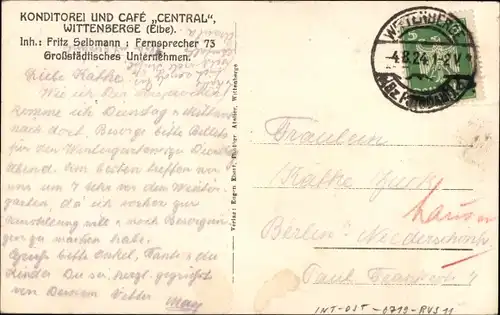 KONDITOREI UND CAFÉ „CENTRAL“,
WITTENBERGE (Elbe).
Inh.: Fritz Selbmann : Fernsprecher 73
Großstädtisches Unternehmen.
Liebe Käthe!
Wie ich Dir
komme ich Dienstag n. Mittag
nach dort. Besorge bitte Billets
für den Wintergarten zu Dienstag
Abend. Am besten treffen wir
uns um 7 Uhr vor dem Winter-
garten, da ich vorher zur
Ausstellung will u. noch Besorgungen
zu machen habe.
Gruß bitte Onkel, Tante u. die
Kinder. Du sei herzl. gegrüßt
von Deinem Vetter
Verlag: Eugen Ebert, Atelier, Wittenberge
WITTENBERGE
-4.8.24.1-2V
(Bz. Potsdam)
5
Fräulein
Käthe
Berlin-Niederschönh.
Paul Franckestr. 4
INT-OST-0719-RVS11